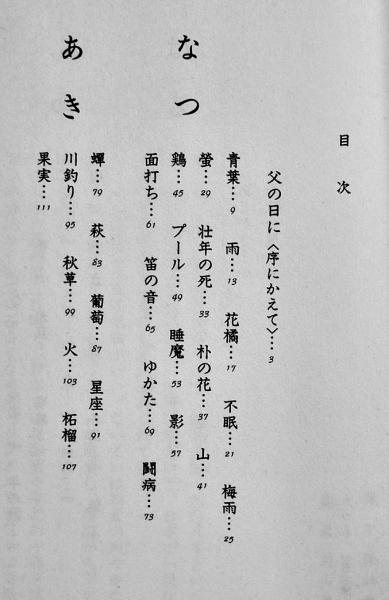 目次
父の日に〈序にかえて〉…3
なつ
青葉…9 雨…13 花橘…17 不眠…21 梅雨…25
螢…29 壮年の死…33 朴の花…37 山…41
鶏…45 プール…49 睡魔…53 影…57
面打ち…61 笛の音…65 ゆかた…69 闘病…73
あき
蟬…79 萩…83 葡萄…87 星座…91
川釣り…95 秋草…99 火…103 柘榴…107
果実…111